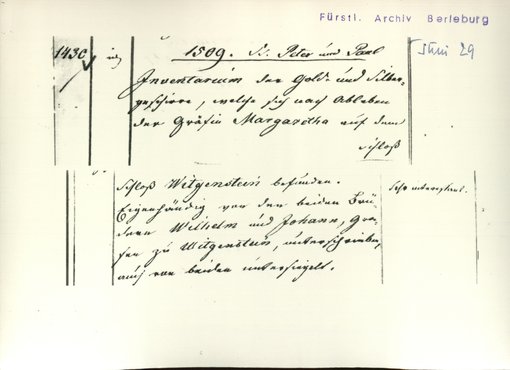 Fürstl. Archiv Berleburg
1430
1509. St. Peter und Paul
Juni 29
Inventarium der Gold- und Silber-
geschirre, welche sich nach Ableben
der Gräfin Margaretha auf dem
Schloß
Schloß Witgenstein befunden.
Eigenhändig von den beiden Brü-
dern Wilhelm und Johann, Gra-
fen zu Witgenstein, unterschrieben,
auch von beiden untersiegelt.